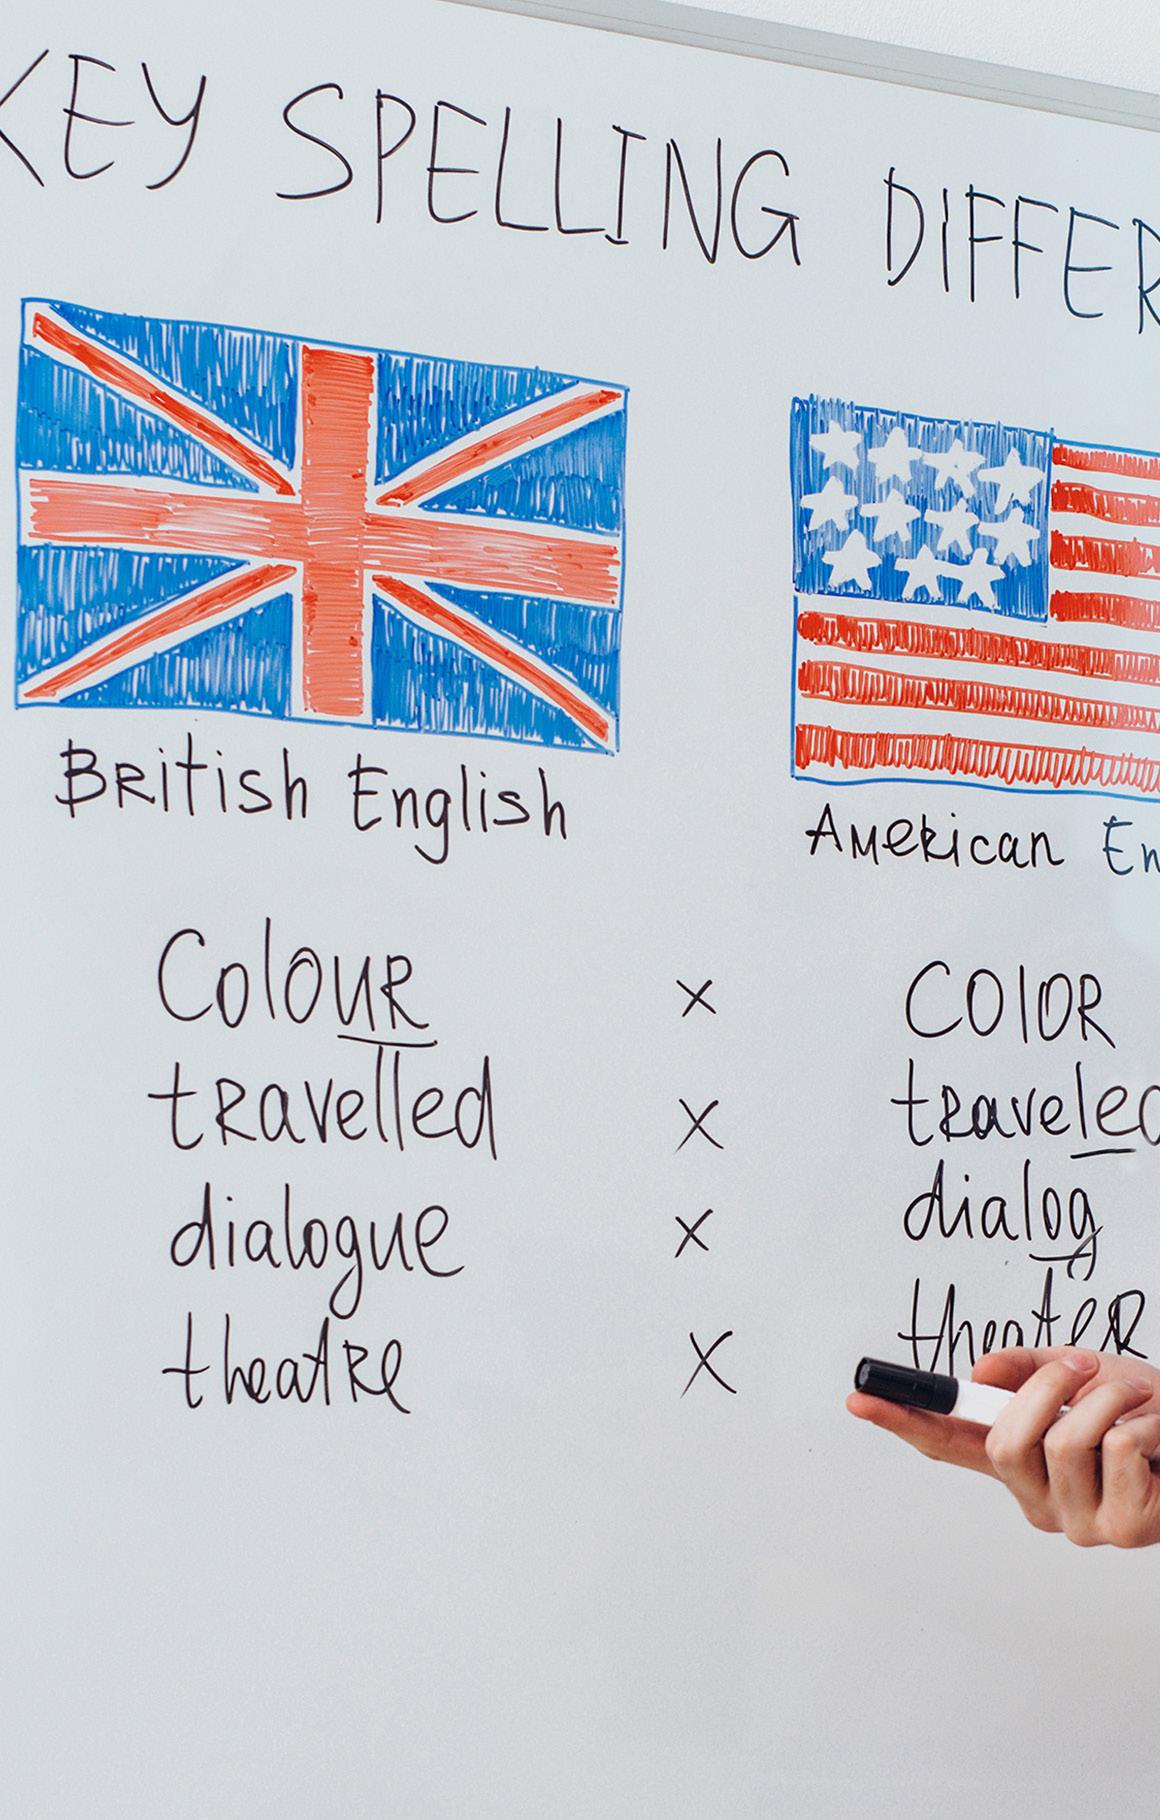 KEY SPELLING DIFFER
British English
American En
Colour × COLOR
travelled × traveled
dialogue × dialog
theatre × theater